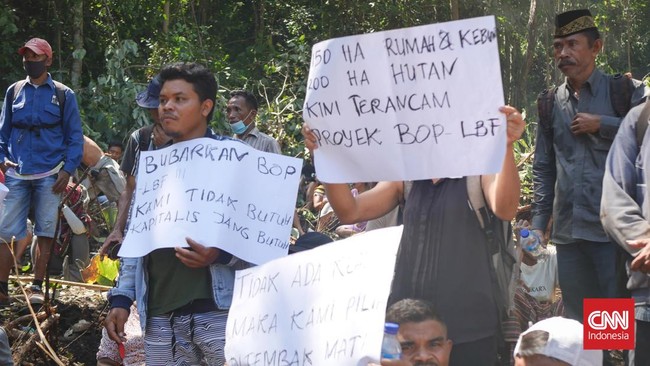 150 HA RUMAH & KEBUN
200 HA HUTAN
KINI TERANCAM
PROYEK BOP-LBF
BUBARKAN BOP
-LBF !!!
KAMI TIDAK BUTUH
KAPITALIS JANG BUTUH
TIDAK ADA
MAKA KAMI
DITEMBAK MATI
CNN
Indonesia